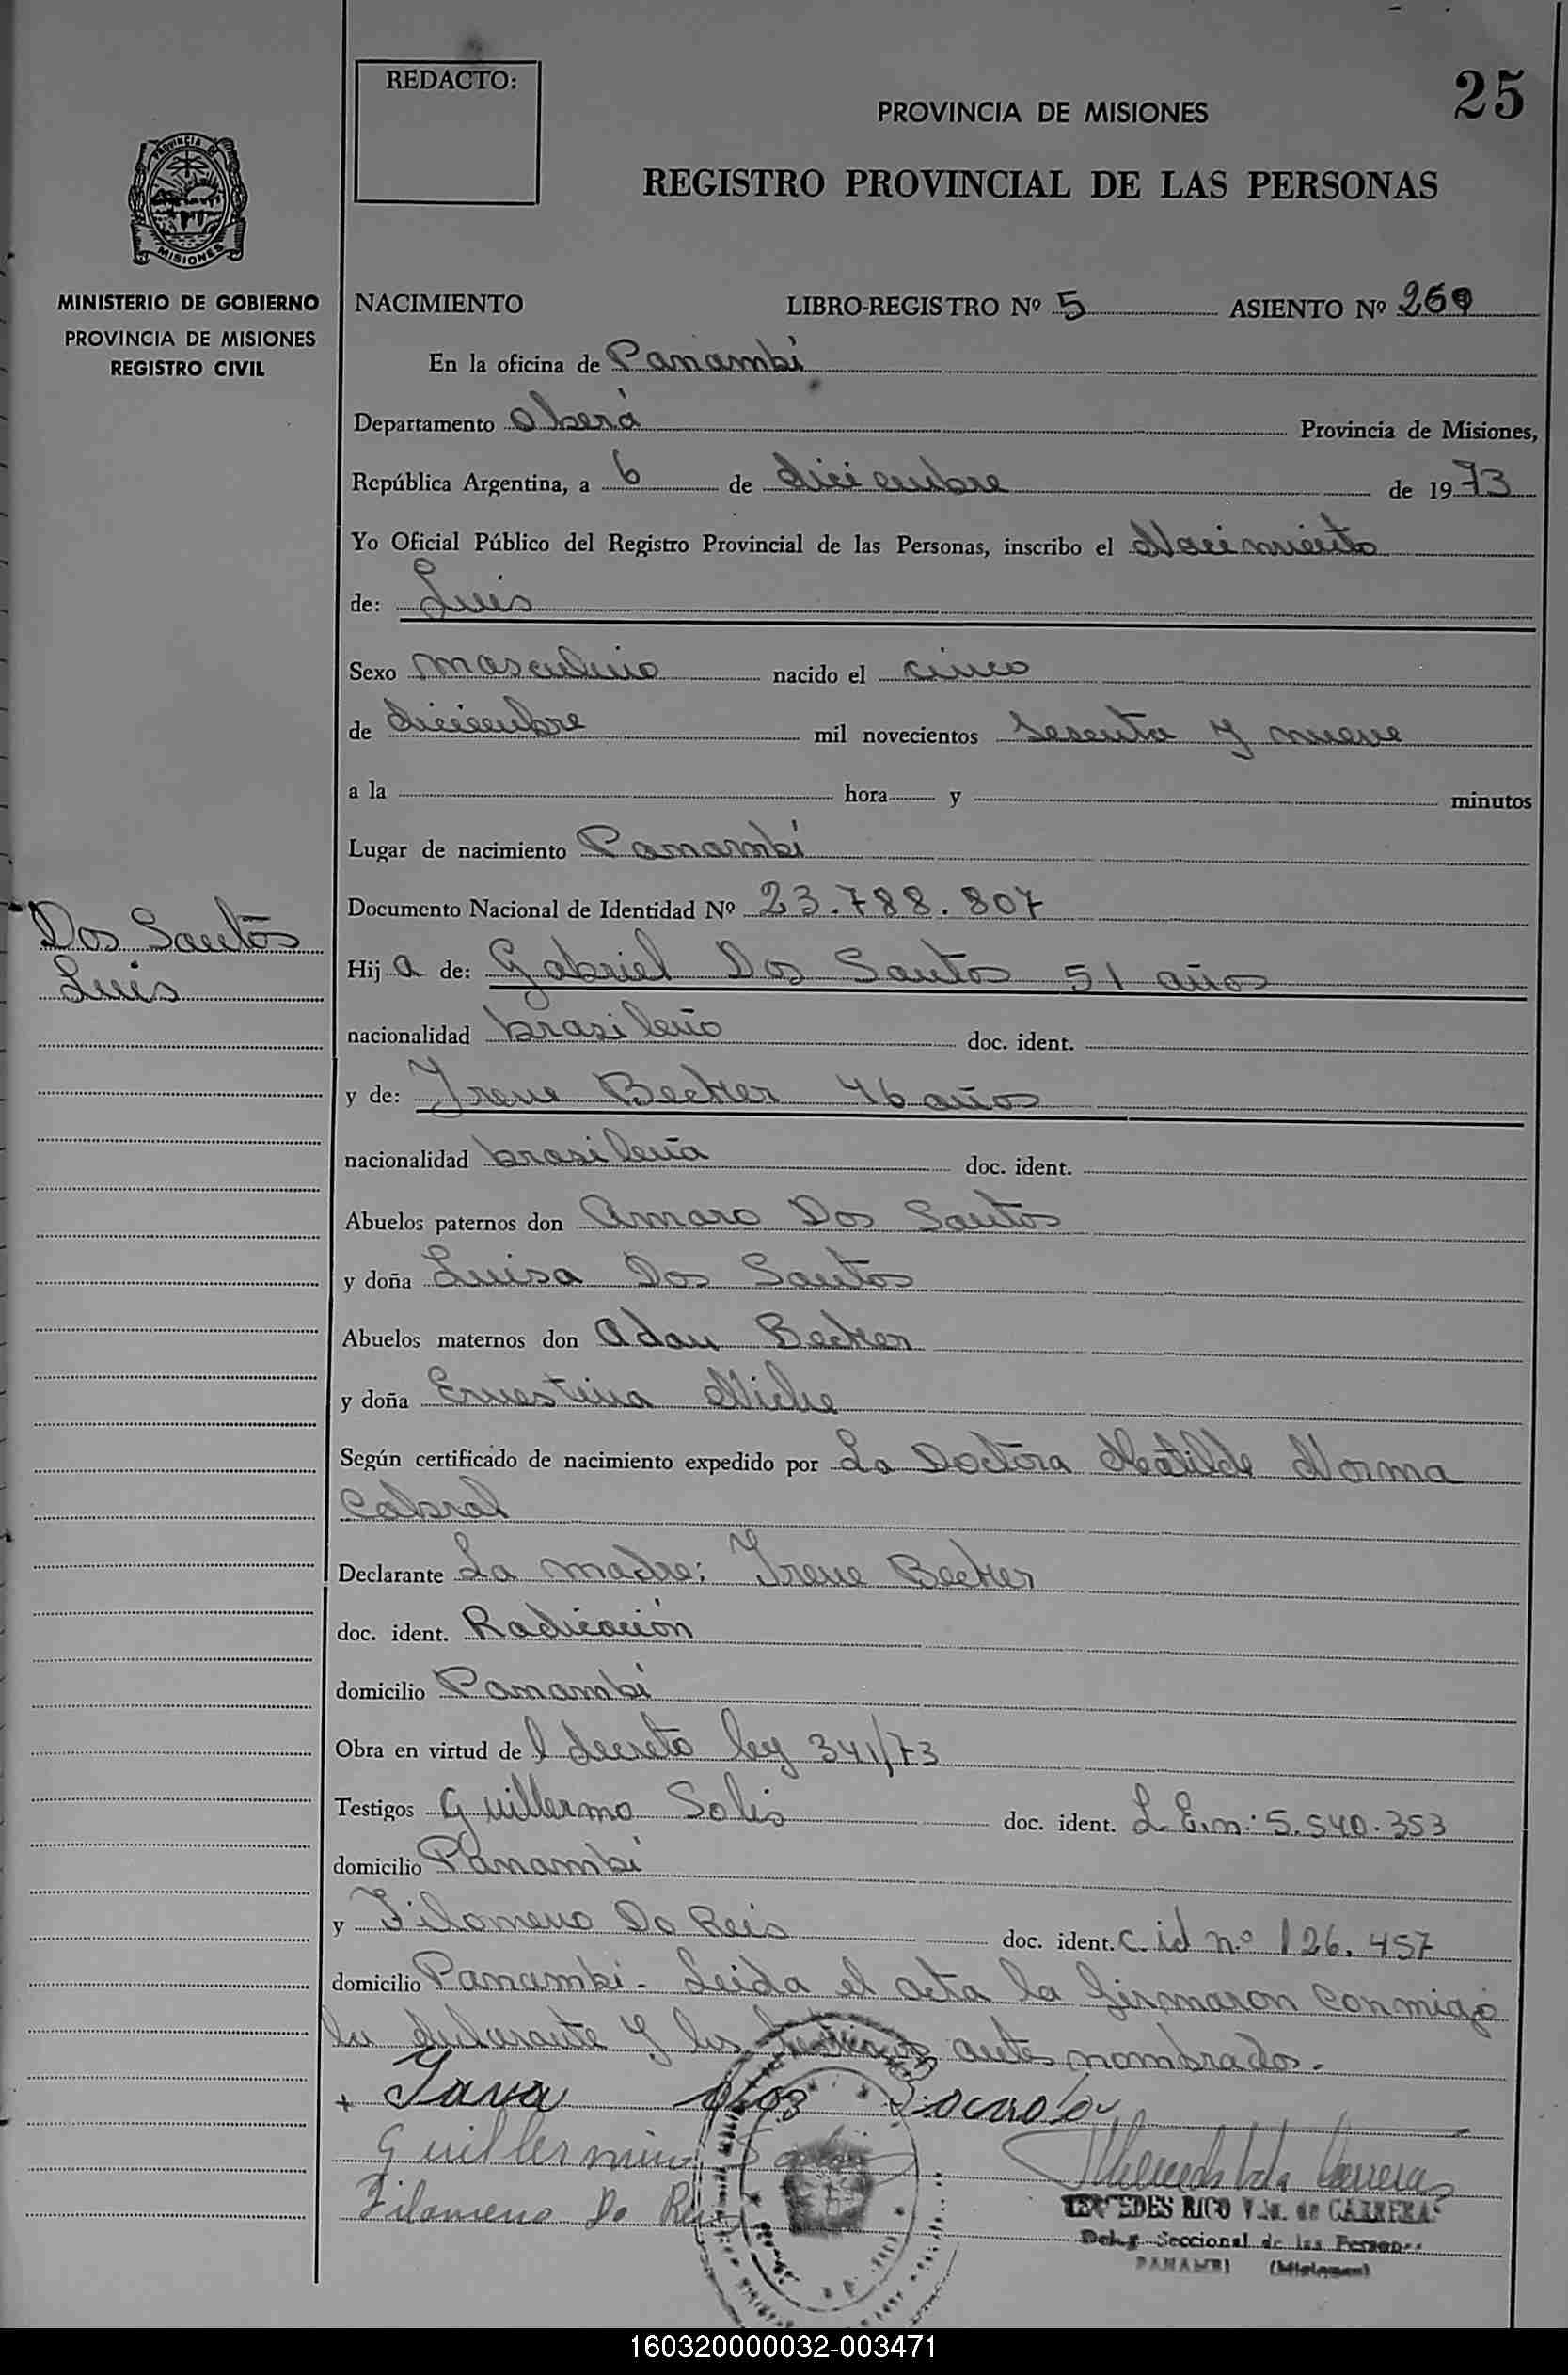 REDACTO:
25
PROVINCIA DE MISIONES
REGISTRO PROVINCIAL DE LAS PERSONAS
PROVINCIA DE
MISIONES
MINISTERIO DE GOBIERNO
PROVINCIA DE MISIONES
REGISTRO CIVIL
NACIMIENTO LIBRO-REGISTRO Nº 5 ASIENTO Nº 269
En la oficina de Panambí
Departamento Oberá Provincia de Misiones,
República Argentina, a 6 de diciembre de 1973
Yo Oficial Público del Registro Provincial de las Personas, inscribo el Nacimiento
de: Luis
Sexo masculino nacido el cinco
de diciembre mil novecientos sesenta y nueve
a la hora y minutos
Lugar de nacimiento Panambí
Documento Nacional de Identidad Nº 23.788.807
Dos Santos
Luis
Hij a de: Gabriel Dos Santos 51 años
nacionalidad brasileño doc. ident.
y de: Irene Becker 46 años
nacionalidad brasileña doc. ident.
Abuelos paternos don Amaro Dos Santos
y doña Luisa Dos Santos
Abuelos maternos don Adan Becker
y doña Ernestina Niche
Según certificado de nacimiento expedido por La Doctora Matilde Norma
Cabral
Declarante La madre: Irene Becker
doc. ident. Radicación
domicilio Panambí
Obra en virtud de l decreto ley 341/73
Testigos Guillermo Solis doc. ident. L.E.n: 5.540.353
domicilio Panambí
y Filomeno Do Reis doc. ident. c. id n.º 126.457
domicilio Panambi - Leida el acta la firmaron conmigo
la declarante y los testigos antes nombrados.
Filomeno Do Reis
MERCEDES RICO Vda. de CARRERAS
Deleg. Seccional de las Personas
PANAMBI (Misiones)
160320000032-003471